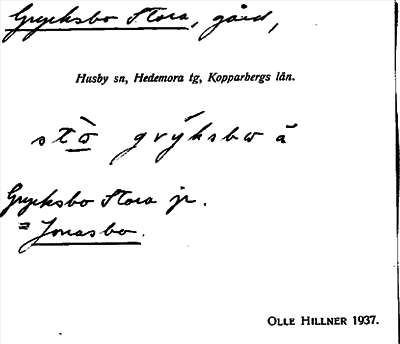 Grycksbo Stora, gård,
Husby sn, Hedemora tg, Kopparbergs län.
Grycksbo Stora jr.
= Jonasbo.
OLLE HILLNER 1937.